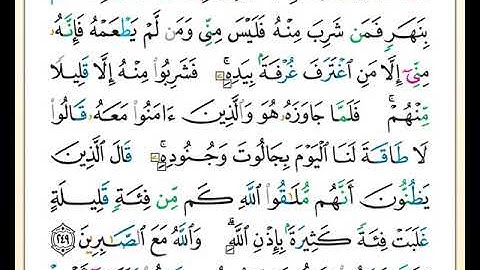 بِنَهَرٍ فَمَن شَرِبَ مِنْهُ فَلَيْسَ مِنِّى وَمَن لَّمْ يَطْعَمْهُ فَإِنَّهُۥ
مِنِّىٓ إِلَّا مَنِ ٱغْتَرَفَ غُرْفَةًۢ بِيَدِهِۦ ۚ فَشَرِبُوا۟ مِنْهُ إِلَّا قَلِيلًا
مِّنْهُمْ ۚ فَلَمَّا جَاوَزَهُۥ هُوَ وَٱلَّذِينَ ءَامَنُوا۟ مَعَهُۥ قَالُوا۟
لَا طَاقَةَ لَنَا ٱلْيَوْمَ بِجَالُوتَ وَجُنُودِهِۦ ۚ قَالَ ٱلَّذِينَ
يَظُنُّونَ أَنَّهُم مُّلَٰقُوا۟ ٱللَّهِ كَم مِّن فِئَةٍ قَلِيلَةٍ
غَلَبَتْ فِئَةً كَثِيرَةًۢ بِإِذْنِ ٱللَّهِ ۗ وَٱللَّهُ مَعَ ٱلصَّٰبِرِينَ ٢٤٩